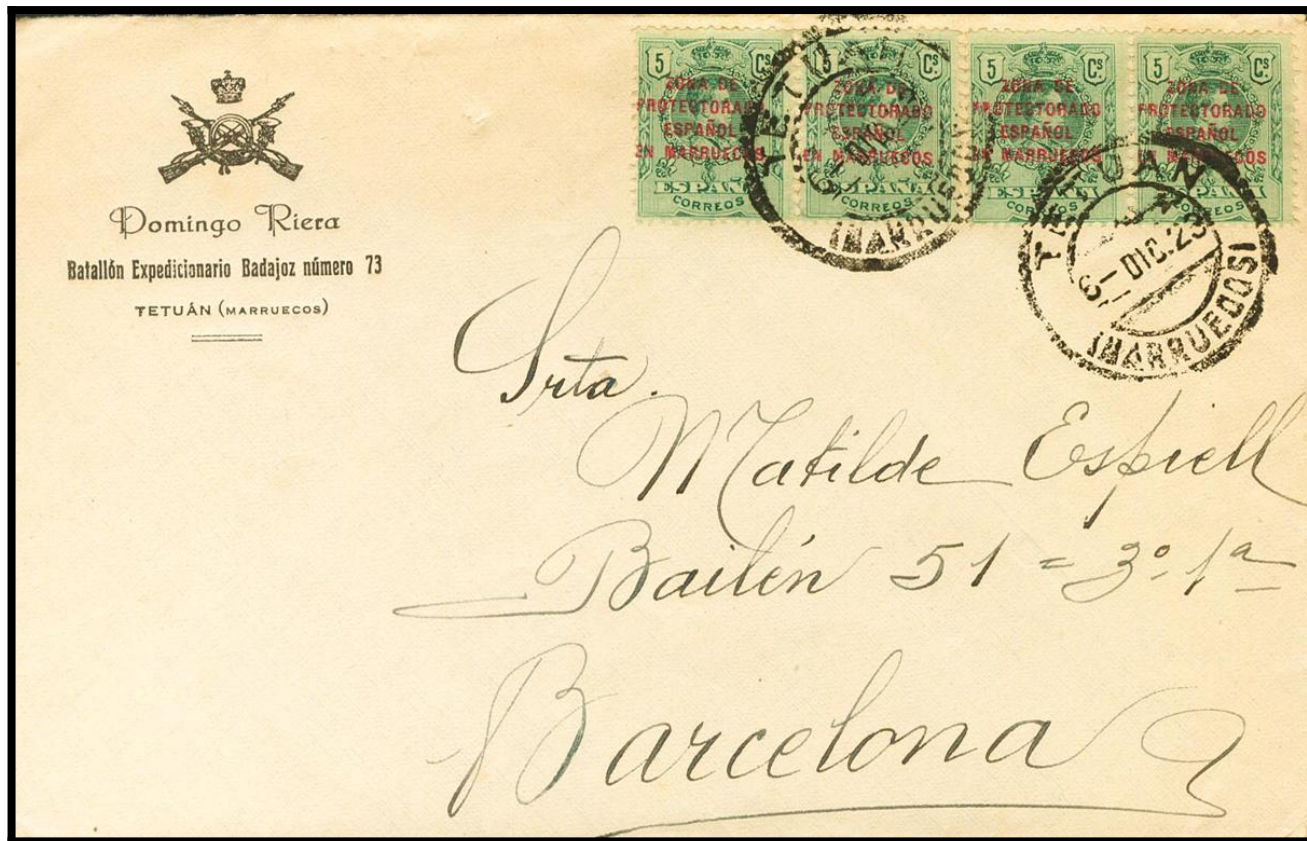 Domingo Riera
Batallón Expedicionario Badajoz número 73
TETUÁN (MARRUECOS)
5 Cs
ZONA DE
PROTECTORADO
ESPAÑOL
EN MARRUECOS
ESPAÑA
CORREOS
5 Cs
ZONA DE
PROTECTORADO
ESPAÑOL
EN MARRUECOS
ESPAÑA
CORREOS
5 Cs
ZONA DE
PROTECTORADO
ESPAÑOL
EN MARRUECOS
ESPAÑA
CORREOS
5 Cs
ZONA DE
PROTECTORADO
ESPAÑOL
EN MARRUECOS
ESPAÑA
CORREOS
TETUAN
(MARRUECOS)
TETUAN
DIC.23
(MARRUECOS)
Srta.
Matilde Espiell
Bailén 51 = 3º 1ª
Barcelona